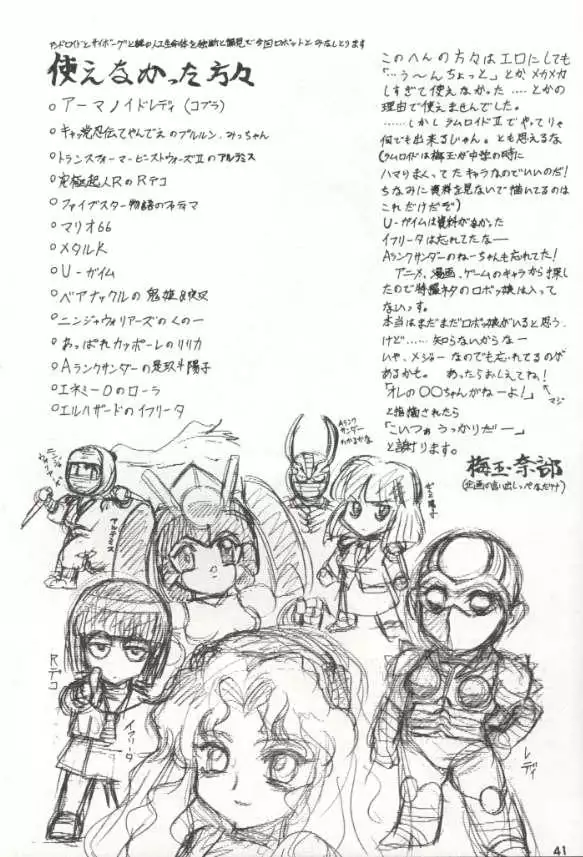 アンドロイドとサイボーグと謎の人工生命体を独断と偏見で今回ロボットとみなしとります
使えなかった方々
○アーマノイドレディ(コブラ)
○キャッ党忍伝てやんでえのプルルン、みっちゃん
○トランスフォーマービーストウォーズⅡのアルテミス
○究極超人RのRデコ
○ファイブスター物語のネテマ
○マリオ66
○メタルK
○U-ガイム
○ベアナックルの鬼姫&夜叉
○ニンジャウォリアーズのくの一
○あっぱれカッポーレのリリカ
○Aランクサンダーの是玖斗陽子
○エネミーOのローラ
○エルハザードのイフリータ
このへんの方々はエロにしても
「…う〜んちょっと」とかメカメカ
しすぎて使えなかった‥‥とかの
理由で使えませんでした。
……しかしラムロイドⅡでやってりゃ
何でも出来るじゃん。とも思えるな
(ラムロイドは梅玉が中学の時に
ハマりまくってたキャラなのでいいのだ!
ちなみに資料を見ないで描いてるのは
これだけだぞ)
U-ガイムは資料がなかった
イフリータは忘れてたなー
Aランクサンダーのねーちゃんも忘れてた!
アニメ、漫画、ゲームのキャラから探し
たので特撮ネタのロボッ娘は入って
ないっス。
本当はまだまだロボッ娘がいると思う
けど……知らないからなー
いや、メジャーなのでも忘れてるのが
あるかも。あったらおしえてね!
「オレの〇〇ちゃんがねーよ!」
マジ
と指摘されたら
「こいつぁうっかりだー」
と謝ります。
梅玉奈部
(企画の言い出しっぺなだけ)
Aランク
サンダー
わかるかな
アルテミス
Rデコ
イフリータ
レディ
41